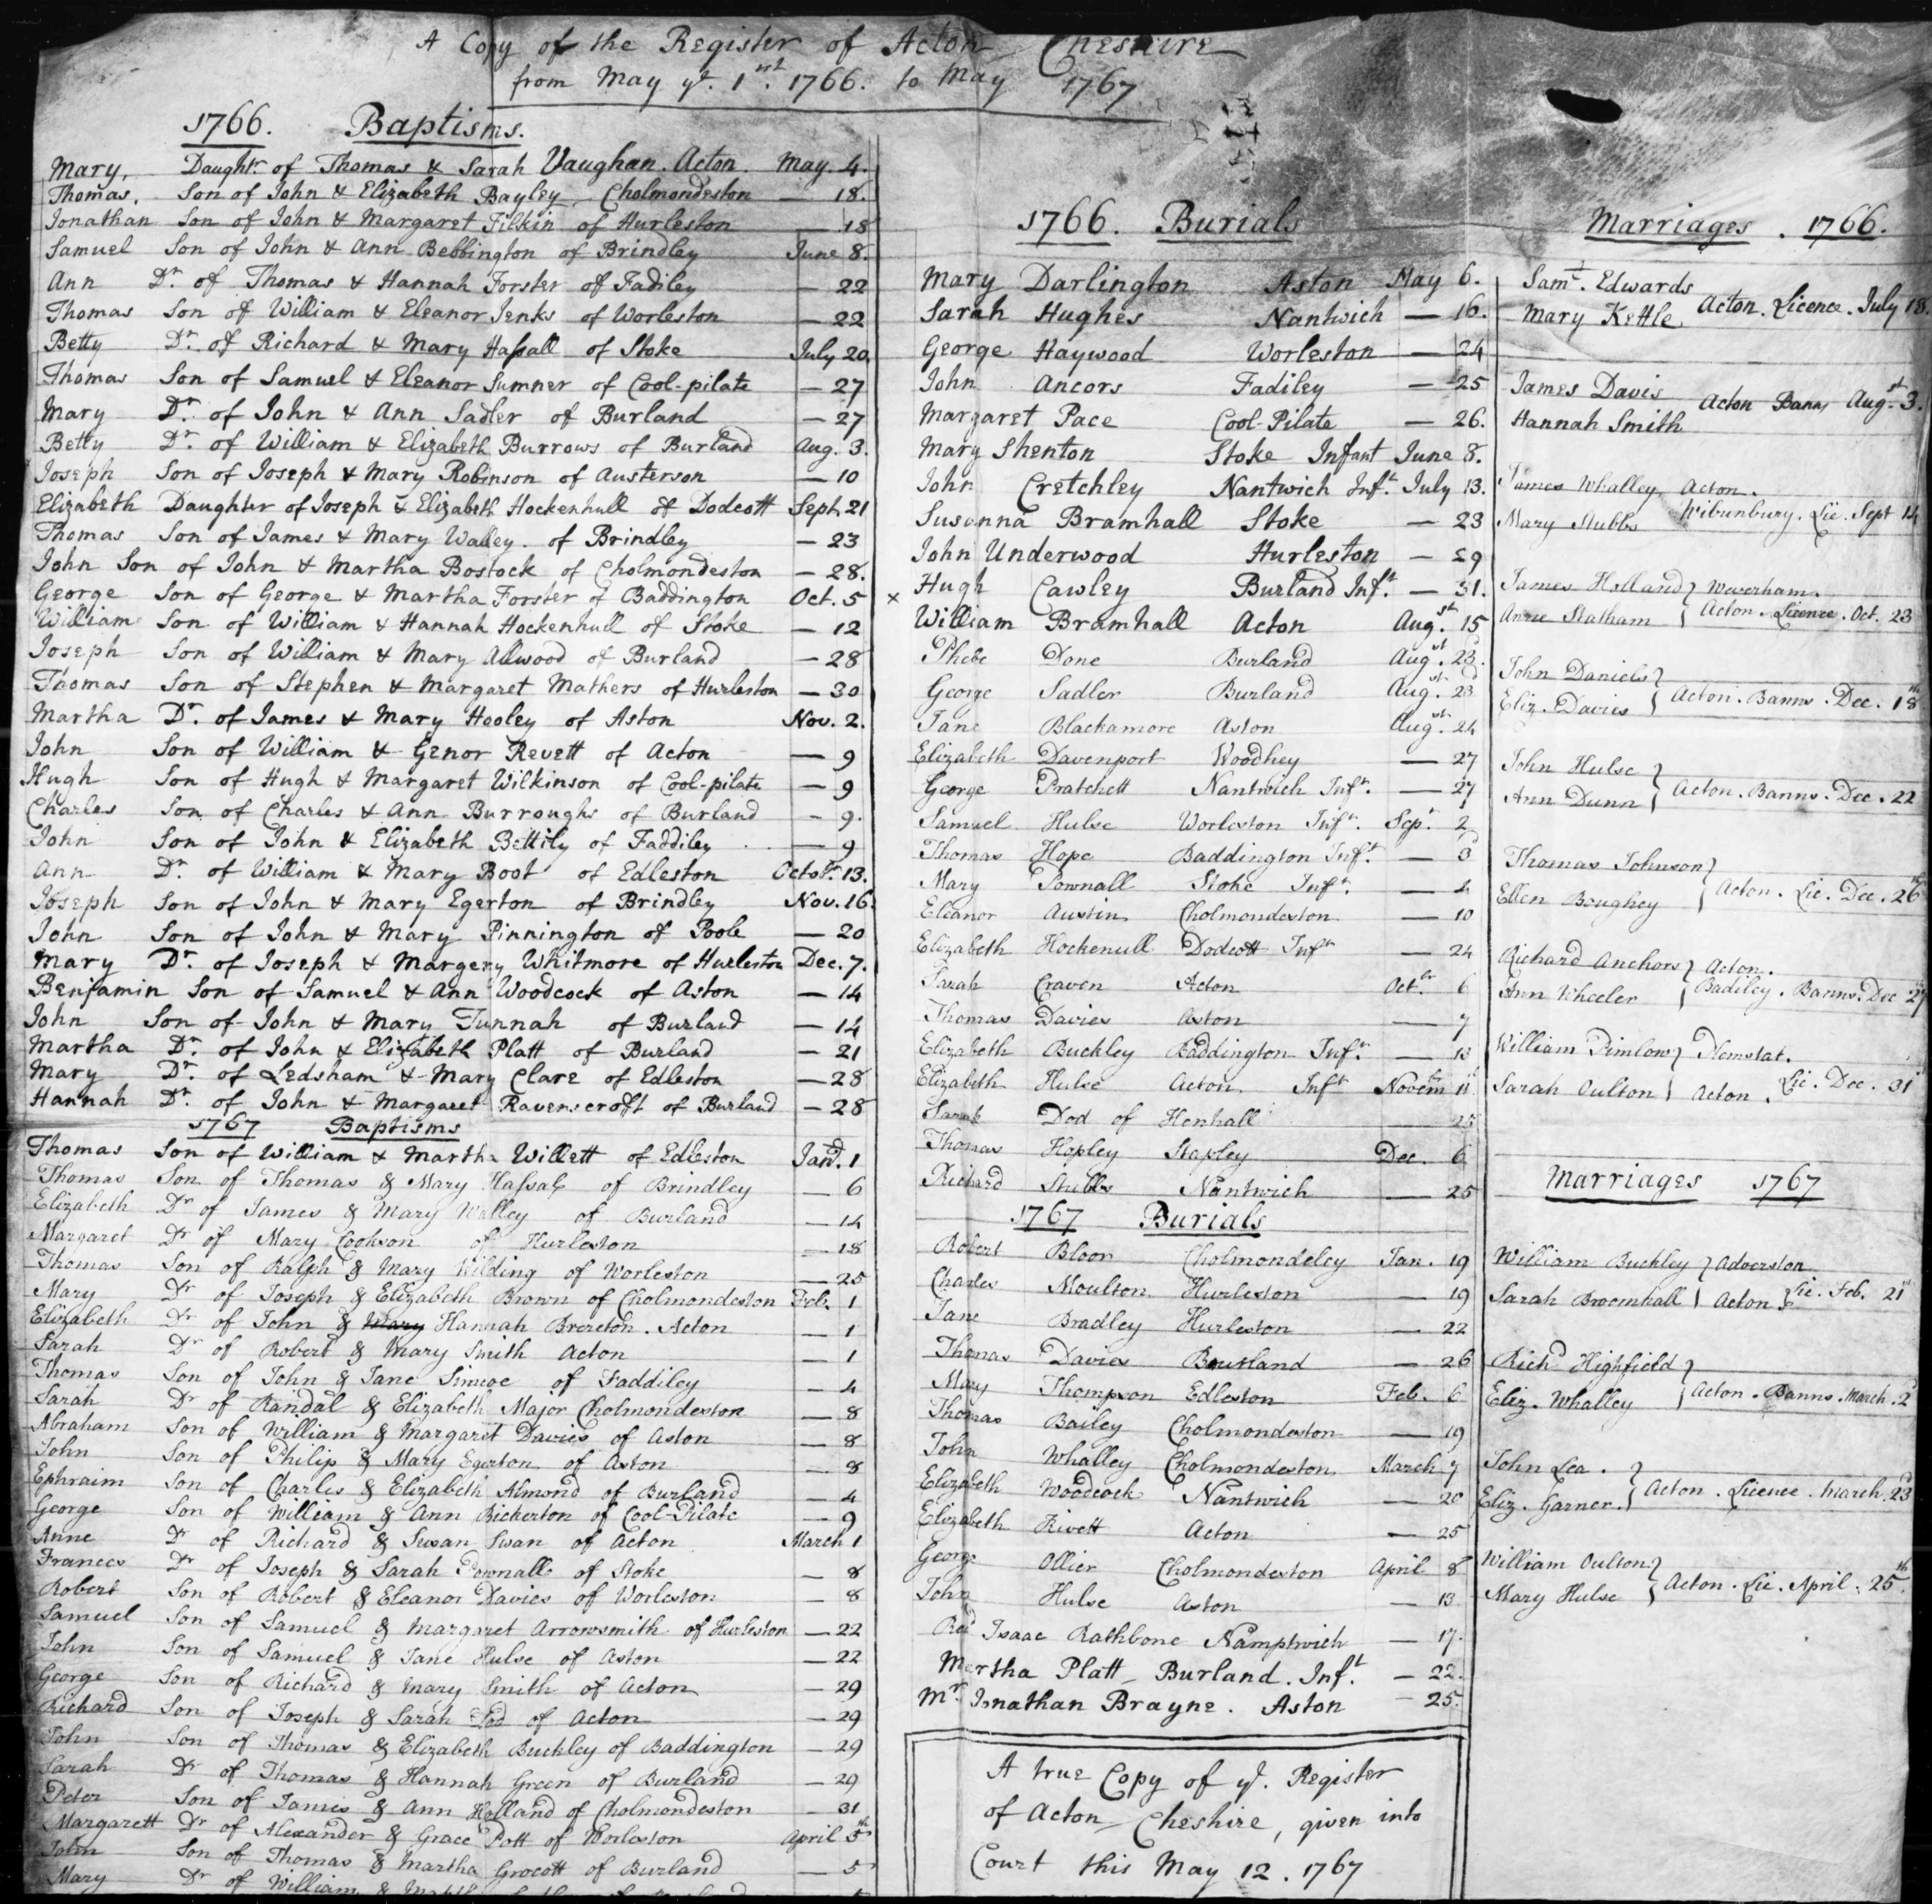 A Copy of the Register of Acton Cheshire
from May ye. 1st. 1766. to May 1767
1766. Baptisms.
Mary, Daughtr. of Thomas & Sarah Vaughan. Acton. May. 4.
Thomas, Son of John & Elizabeth Bayley, Cholmondeston — 18.
Jonathan Son of John & Margaret Filkin of Hurleston — 18
Samuel Son of John & Ann Bebbington of Brindley June 8.
Ann Dr. of Thomas & Hannah Forster of Fadiley — 22
Thomas Son of William & Eleanor Jenks of Worleston — 22
Betty Dr. of Richard & Mary Hassall of Stoke July 20
Thomas Son of Samuel & Eleanor Sumner of Cool-pilate — 27
Mary Dr. of John & Ann Sadler of Burland — 27
Betty Dr. of William & Elizabeth Burrows of Burland Aug. 3.
Joseph Son of Joseph & Mary Robinson of Austerson — 10
Elizabeth Daughter of Joseph & Elizabeth Hockenhull of Dodcott Sept. 21
Thomas Son of James & Mary Walley. of Brindley — 23
John Son of John & Martha Bostock of Cholmondeston — 28.
George Son of George & Martha Forster of Baddington Oct. 5
William Son of William & Hannah Hockenhull of Stoke — 12
Joseph Son of William & Mary Allwood of Burland — 28
Thomas Son of Stephen & Margaret Mathers of Hurleston — 30
Martha Dr. of James & Mary Hooley of Aston Nov. 2.
John Son of William & Genor Revett of Acton — 9
Hugh Son of Hugh & Margaret Wilkinson of Cool-pilate — 9
Charles Son of Charles & Ann Burroughs of Burland — 9.
John Son of John & Elizabeth Bettily of Faddiley — 9
Ann Dr. of William & Mary Boot of Edleston Octobr. 13.
Joseph Son of John & Mary Egerton of Brindley Nov. 16.
John Son of John & Mary Pinnington of Poole — 20
Mary Dr. of Joseph & Margery Whitmore of Hurleston Dec. 7.
Benjamin Son of Samuel & Ann Woodcock of Aston — 14
John Son of John & Mary Tunnah of Burland — 14
Martha Dr. of John & Elizabeth Platt of Burland — 21
Mary Dr. of Ledsham & Mary Clare of Edleston — 28
Hannah Dr. of John & Margaret Ravenscroft of Burland — 28
1767 Baptisms
Thomas Son of William & Martha Willett of Edleston Jan. 1
Thomas Son of Thomas & Mary Hassal of Brindley — 6
Elizabeth Dr of James & Mary Walley of Burland — 14
Margaret Dr of Mary Cookson of Hurleston — 18
Thomas Son of Ralph & Mary Wilding of Worleston — 25
Mary Dr of Joseph & Elizabeth Brown of Cholmondeston Feb. 1
Elizabeth Dr of John & Mary Hannah Brereton. Acton — 1
Sarah Dr of Robert & Mary Smith Acton — 1
Thomas Son of John & Jane Simcoe of Faddiley — 4
Sarah Dr of Randal & Elizabeth Major Cholmondeston — 8
Abraham Son of William & Margaret Davies of Aston — 8
John Son of Philip & Mary Egerton of Aston — 8
Ephraim Son of Charles & Elizabeth Almond of Burland — 4
George Son of William & Ann Bickerton of Cool-Pilate — 9
Anne Dr of Richard & Susan Swan of Acton March 1
Frances Dr of Joseph & Sarah Pownall of Stoke — 8
Robert Son of Robert & Eleanor Davies of Worleston — 8
Samuel Son of Samuel & Margaret Arrowsmith of Hurleston — 22
John Son of Samuel & Jane Hulse of Aston — 22
George Son of Richard & Mary Smith of Acton — 29
Richard Son of Joseph & Sarah Dod of Acton — 29
John Son of Thomas & Elizabeth Buckley of Baddington — 29
Sarah Dr of Thomas & Hannah Green of Burland — 29
Peter Son of James & Ann Holland of Cholmondeston — 31
Margarett Dr of Alexander & Grace Pott of Worleston April 5th
John Son of Thomas & Martha Grocott of Burland — 5
Mary Dr of William &
1766. Burials
Mary Darlington Aston May 6.
Sarah Hughes Nantwich — 16.
George Haywood Worleston — 24
John Ancors Fadiley — 25
Margaret Pace Cool-Pilate — 26.
Mary Shenton Stoke Infant June 8.
John Cretchley Nantwich Inft. July 13.
Susanna Bramhall Stoke — 23
John Underwood Hurleston — 29
× Hugh Cawley Burland Inft. — 31.
William Bramhall Acton Augst. 15
Phebe Done Burland Augst. 23.
George Sadler Burland Augst. 23
Jane Blackamore Aston Augst. 24
Elizabeth Davenport Woodhey — 27
George Pratchett Nantwich Inft. — 27
Samuel Hulse Worleston Inft. Sept. 2
Thomas Hope Baddington Inft. — 3
Mary Pownall Stoke Inft. — 4
Eleanor Austin Cholmondeston — 10
Elizabeth Hockenull Dodcott Inft — 24
Sarah Craven Acton Octbr. 6
Thomas Davies Aston — 7
Elizabeth Buckley Baddington Inft. — 13
Elizabeth Hulse Acton Inft Novem 11
Sarah Dod of Henhall — 25
Thomas Hopley Stapley Dec. 6
Richard Stubbs Nantwich — 25
1767 Burials
Robert Bloor Cholmondeley Jan. 19
Charles Moulton Hurleston — 19
Jane Bradley Hurleston — 22
Thomas Davies Burland — 26
Mary Thompson Edleston Feb. 6
Thomas Bailey Cholmondeston — 19
John Whalley Cholmondeston March 7
Elizabeth Woodcock Nantwich — 20
Elizabeth Rivett Acton — 25
George Ollier Cholmondeston April 8
John Hulse Aston — 13
Revd Isaac Rathbone Namptwich — 17.
Martha Platt Burland. Inft. — 22.
Mr. Jonathan Brayne. Aston — 25.
A true Copy of ye. Register
of Acton Cheshire, given into
Court this May 12. 1767
Marriages. 1766.
Saml. Edwards
Mary Kettle Acton. Licence. July 18.
James Davis
Hannah Smith Acton Banns Augst. 3.
James Whalley Acton.
Mary Stubbs Wibunbury. Lic. Sept 14
James Holland } Weverham.
Anne Statham } Acton. Licence. Oct. 23
John Daniels }
Eliz. Davies } Acton. Banns. Dec. 18th
John Hulse }
Ann Dunn } Acton. Banns. Dec. 22
Thomas Johnson }
Ellen Boughey } Acton. Lic. Dec. 26th
Richard Anchors } Acton.
Ann Wheeler } Badiley. Banns. Dec 27
William Pimlow }
Sarah Oulton } Acton. Lic. Dec. 31st
Marriages 1767
William Buckley } Adverston
Sarah Broemhall } Acton. Lic. Feb. 21st
Richd Highfield }
Eliz. Whalley } Acton. Banns. March. 2d
John Lea. }
Eliz. Garner. } Acton. Licence. March. 23d
William Oulton }
Mary Hulse } Acton. Lic. April. 25th.